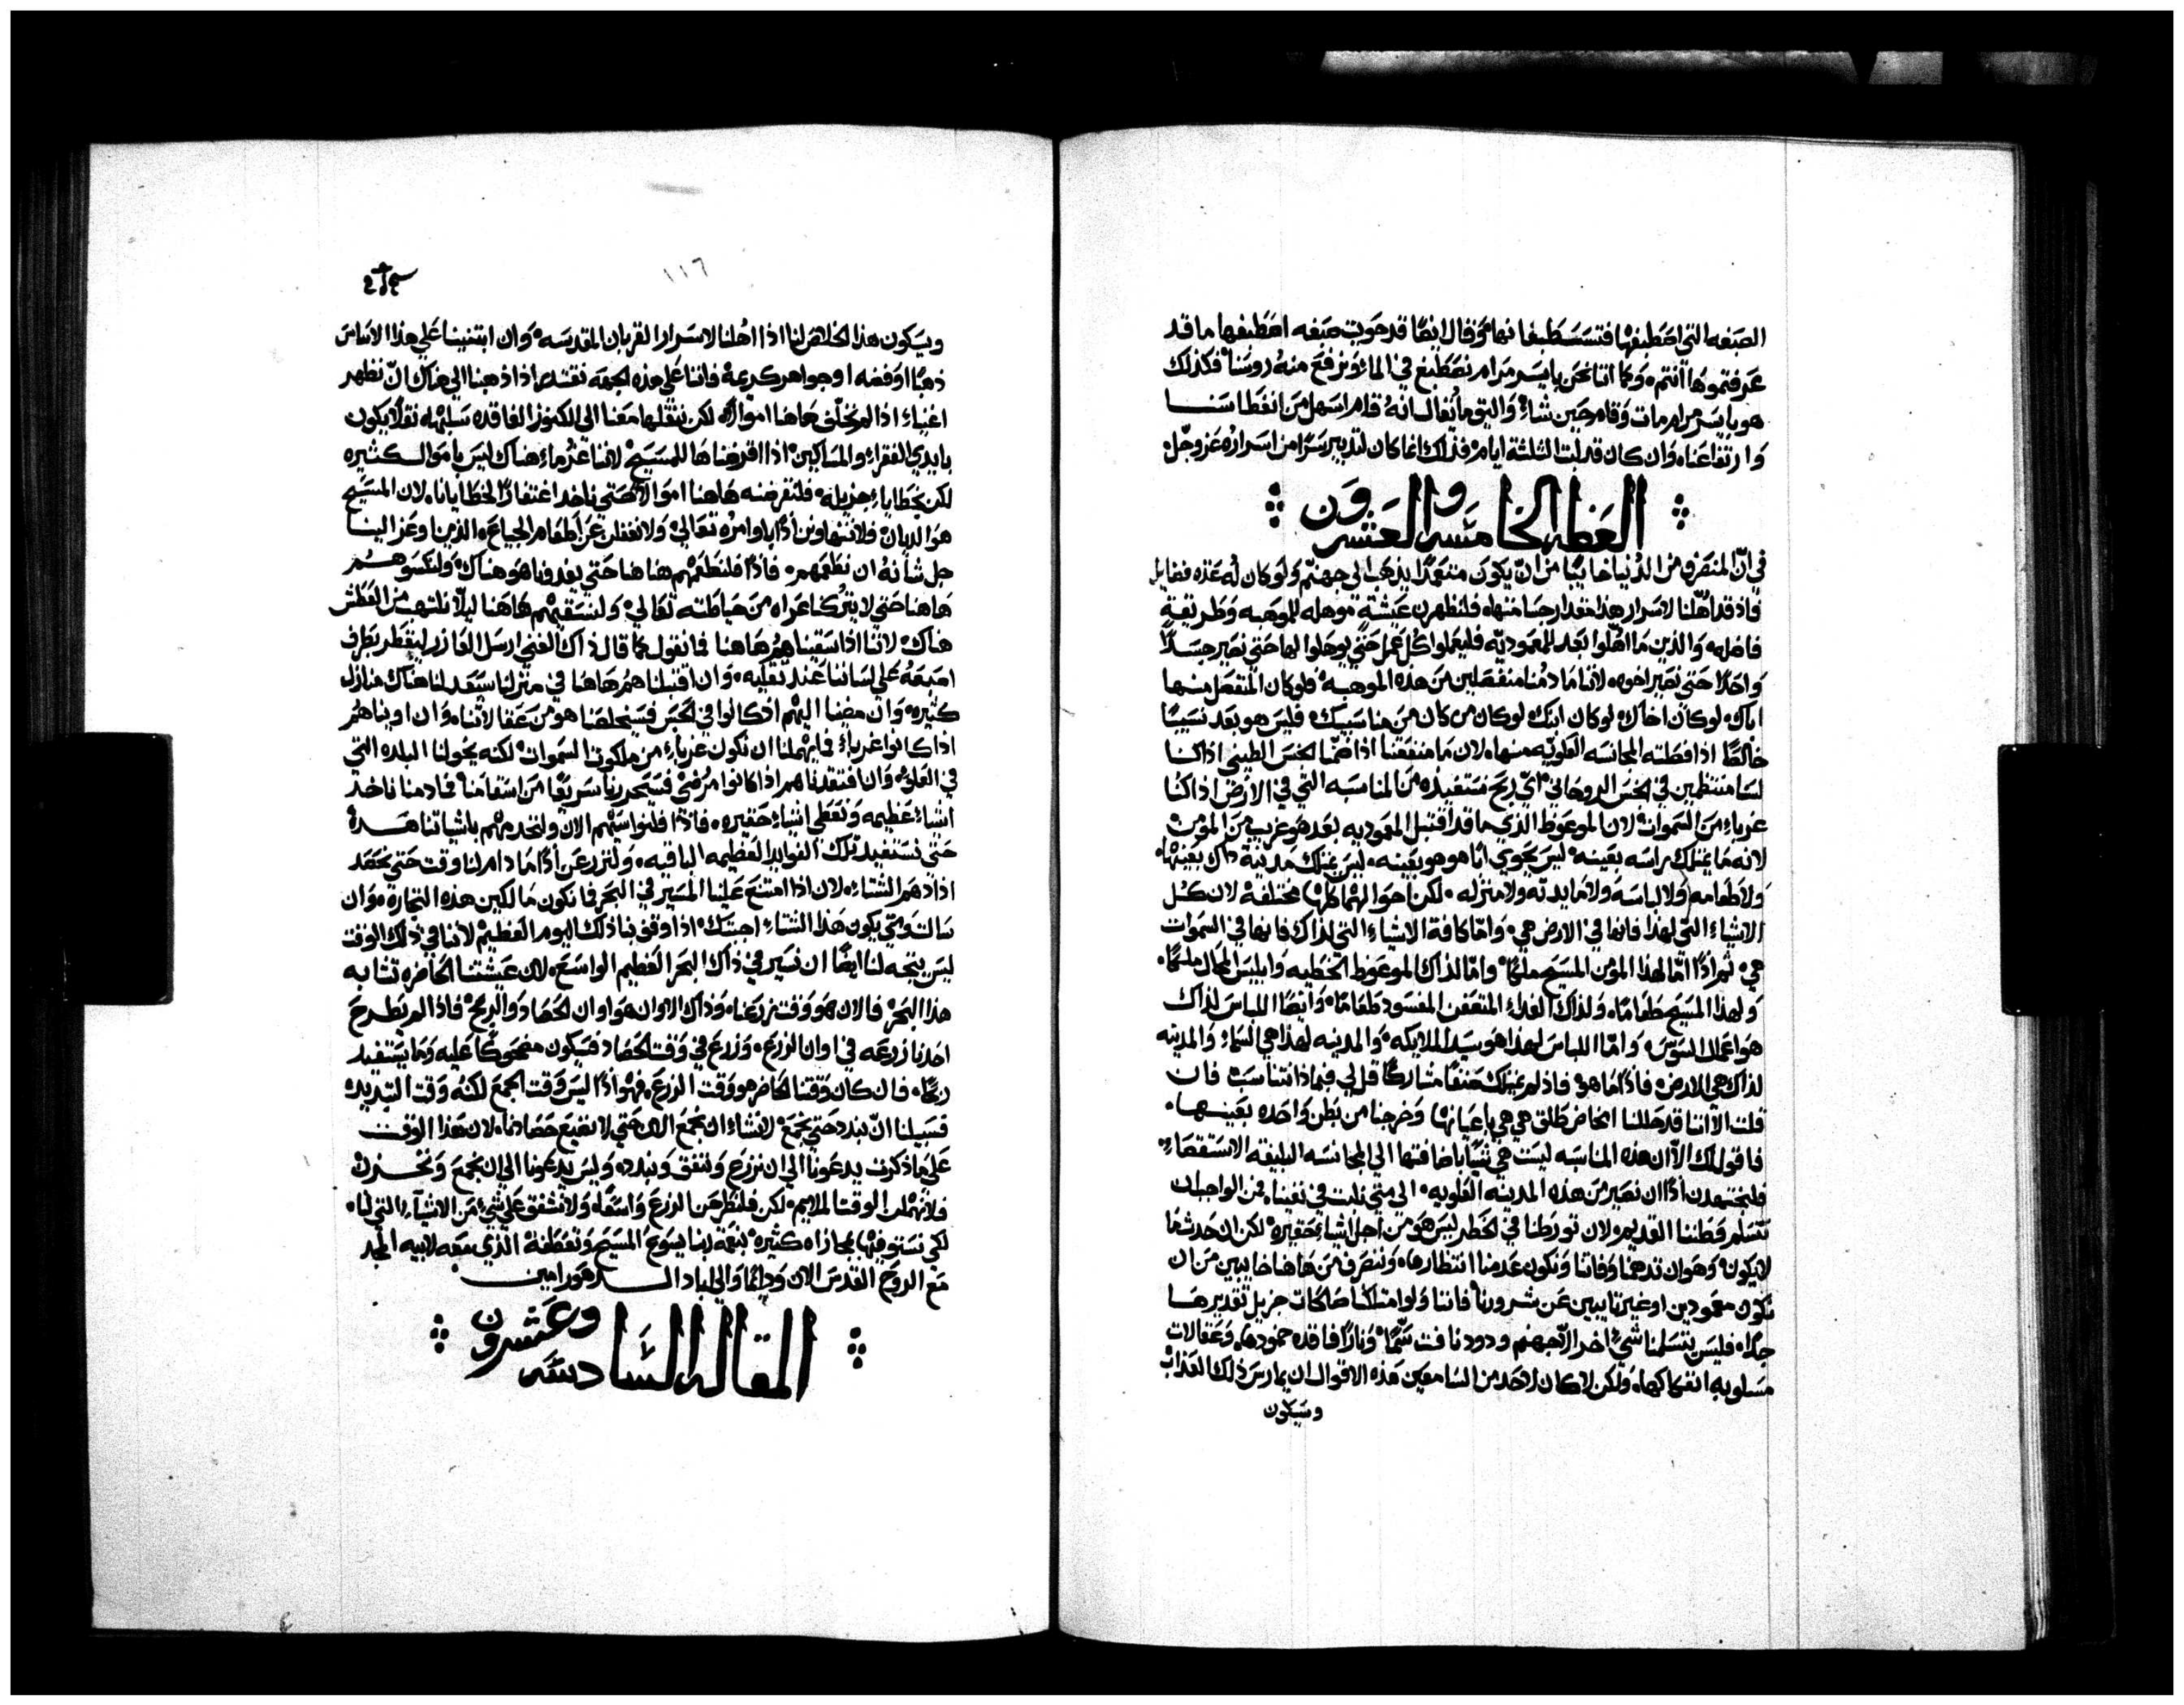 الصبغه التي اصطبغها فتستصطبغانها وقال ايضًا قد حويت صبغه اصطبغها ما قد
عرفتموها انتم، وكما اننا نحن بايسر مرام نصطبغ في الماء ونرفع منه روسنا فكذلك
هو بايسر مرام مات وقام حين شاء، واليق ما يُقال انه قام اسهل من انغطاسنا
وارتفاعنا، وان كان قد لبث الثلثه ايام، فذلك انما كان لتدبير سرًا من اسراره عز وجل،
العظه الخامسه والعشرون
في انّ المنصرف من الدنيا خايبًا من انّ يكون متعمدًا يذهب الي جهنم ولو كان له عده فضايل
فاذ قد اهّلنا لاسرار هذا مقدار جسامتها، فلنظهرن عيشةٍ موهله للموهبه وطريقةٍ
فاضله، والذين ما اهّلوا بعد للمعموديه فليعملوا كل عمل حتي يوهلوا لها حتي نصير جسدًا
واحدًا حتي نصير اخوه، لاننا ما دمنا منفصلين من هذه الموهبه، فلو كان المنفصل منها
اباك، لو كان اخاك، لو كان ابنك، لو كان من كان من مناسبيك، فليس هو بعد نسيبًا
خالصًا اذ افصلته المجانسه العلويه منها، لان ما منفعتنا اذا ضمنا الجنس الطيني اذا كنا
لسنا منتظمين في الجنس الروحاني، ايّ ربح مستفيده من المناسبه التي في الارض اذا كنا
غرباء من السموات، لان الموعوظ الذي ما قد اقتبل المعموديه بعد هو غريب من المؤمن،
لانه ما يمتلك راسه بعينه، ليس يحوي ابًا هو هو بعينه، ليس يمتلك مدينة ذاك بعينها،
ولا طعامه ولا لباسه ولا مايدته ولا منزله، لكن احوالهما كلها مختلفه، لان كل
الاشياء التي لهذا فانها في الارض هي، وامّا كافة الاشياء التي لذاك فانها في السموات
هي، ثم اذًا امّا لهذا المؤمن المسيح ملكًا، وامّا لذاك الموعوظ الخطيه وابليس المحال ملكًا،
ولهذا المسيح طعامًا، ولذاك الغذاء المتعفن المفسود طعامًا، وايضًا اللباس لذاك
هو اعمال السوس، وامّا اللباس لهذا هو سيد الملايكه، والمدينه لهذا هي السماء والمدينه
لذاك هي الارض، فاذًا ما هو، فاذ لم يمتلك صنفًا مشاركًا قل لي فبماذا نتناسب فان
قلت الا اننا قد حللنا مخاض طلق هي هي باعيانها وخرجنا من بطن واحده بعينها،
فاقول لك الا ان هذه المناسبه ليست هي شيًا باضافتها الي المجانسه البليغه الاستقصاء،
فلنجتهدن اذًا ان نصير من هذه المدينه العلويه، الي متي نلبث في نفينا، فمن الواجب ان
نتسلم وطننا القديم، لان تورطنا في الخطر ليس هو من اجل اشياء حقيره، لكن ان حدث ما
لا يكون، وهو ان تدهمنا وفاتنا وتكون عدمنا انتظارها، وننصرف من هاهنا خايبين من ان
نكون معمودين او غير تايبين عن شرورنا، فاننا ولو امتلكنا صالحات جزيل تقديرها
جدًا، فليس يتسلمنا شي اخر الا جهنم ودود نافث سمًا، ونارًا فاقده خمودها، وعقالات
مسلوبه انفكاكها، ولكن لا كان لاحد من السامعين هذه الاقوال ان يمارس ذلك العذاب
وسيكون
١١٦
ويسكون هذا الخلاص لنا اذا اهلنا لاسرار القربان المقدسه، وان ابتنينا علي هذا الاساس
ذهبًا او فضه او جواهر كريمة فاننا علي هذه الجهه نقتدر اذا ذهبنا الي هناك انّ نظهر
اغنياء اذا لم نخلّف هاهنا اموالًا، لكن ننقلها معنا الي الكنوز الفاقده سلبها، نقلًا يكون
بايدي الفقراء والمساكين، اذا اقرضناها للمسيح، لاننا غرماء هناك ليس باموال كثيره
لكن بخطايا جزيله، فلنقرضنه هاهنا اموالًا حتي ناخذ اغتفارًا لخطايانا، لان المسيح
هو الديان، فلا نتهاونن اذًا باوامره تعالي، ولا نغفلن عن اطعام الجياع، الذين اوعز الينا
جل شأنه ان نطعمهم، فاذًا فلنطعمهم هاهنا حتي يغدونا هو هناك، ولنكسوهم
هاهنا حتي لا يتركنا عراه من حياطته تعالي، ولنسقيهم هاهنا ليلّا نلتهب من العطش
هناك، لاننا اذا سقيناهم هاهنا فما نقول كما قال ذاك الغني ارسل العازر ليقطر بطرف
اصبعه علي لساننا عند تقليه، وان اقتبلناهم هاهنا في منزلنا سيعد لنا هناك منازل
كثيره، وان مضينا اليهم اذ كانوا في الحبس فسيخلصنا هو من عقالاتنا، وان اويناهم
اذا كانوا غرباء، فما يهملنا ان نكون غرباء من ملكوت السموات، لكنه يخولنا البلده التي
في العلي، وان افتقدناهم اذا كانوا مرضي، فسيحررنا سريعًا من اسقامنا، فما دمنا ناخذ
اشياء عظيمه ونعطي اشياء حقيره، فاذًا فلنواسيهم الان ولنخدمهم باشياتنا هذه
حتي نستفيد تلك الفوايد العظيمه الباقيه، ولنزرعن اذًا ما دام لنا وقت حتي نحصد
اذا دهم الشتاء، لان اذا امتنع علينا المسير في البحر فما نكون مالكين هذه التجارة، وان
سالت ومتي يكون هذا الشتاء، اجبتك، اذا وقف بنا ذلك اليوم العظيم، لاننا في ذلك الوقت
ليس يتجه لنا ايضًا ان نسير في ذاك البحر العظيم الواسع، لان عيشتنا الحاضره تشابه
هذا البحر، فالان هو وقت زرعنا، وذاك الاوان هو اوان الحصاد والربح، فاذا لم يطرح
احدنا زرعه في اوان الزرع، وزرع في وقت الحصاد، فسيكون مضحوكًا عليه وما يستفيد
ربحًا، فان كان وقتنا الحاضر هو وقت الزرع، فهو اذًا ليس وقت الجمع لكنه وقت التبديد،
فسبيلنا انّ نبدد حتي نجمع، لانشاء ان نجمع الان حتي لا نضيع حصادنا، لان هذا الوقت
علي ما ذكرت يدعونا الي ان نزرع وننفق ونبدد، وليس يدعونا الي ان نجمع ونخزن
فلا نهملن الوقت الملايم، لكن فلنطرحن الزرع واسعًا، ولا نشفق علي شي من الاشياء التي لنا،
لكي نستوفيها بمجازاه كثيره، بنعمة ربنا يسوع المسيح وتعطفه، الذي معه لابيه المجد
مع الروح القدس الان ودايمًا والي اباد الدهور امين
المقاله السادسه وعشرون